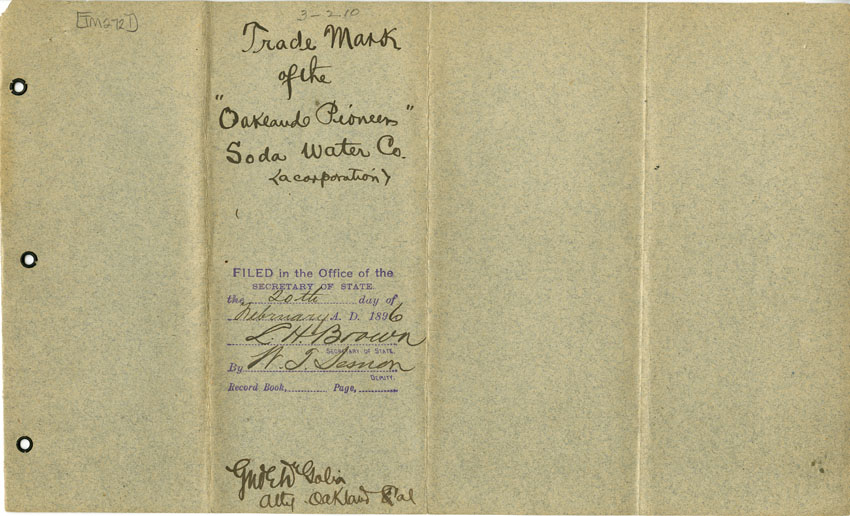 [TM2721]
3-2-10
Trade Mark
of the
"Oakland Pioneers"
Soda Water Co.
(a corporation)
FILED in the Office of the
SECRETARY OF STATE.
the 20th day of
February A. D. 1896
L. H. Brown
SECRETARY OF STATE.
By W. T. Sesnon
DEPUTY.
Record Book, Page,
Atty Oakland Cal